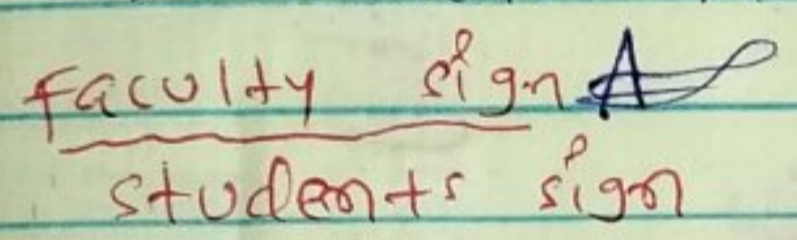 faculty sign
students sign